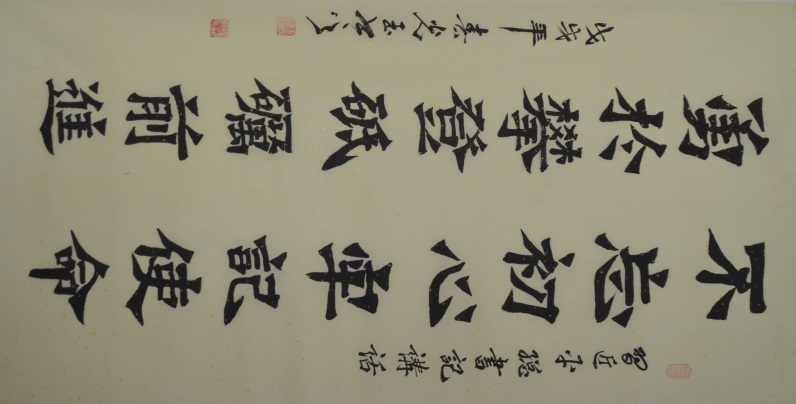 習近平總書記講話
不忘初心牢記使命
勇於攀登砥礪前進
戊戌年